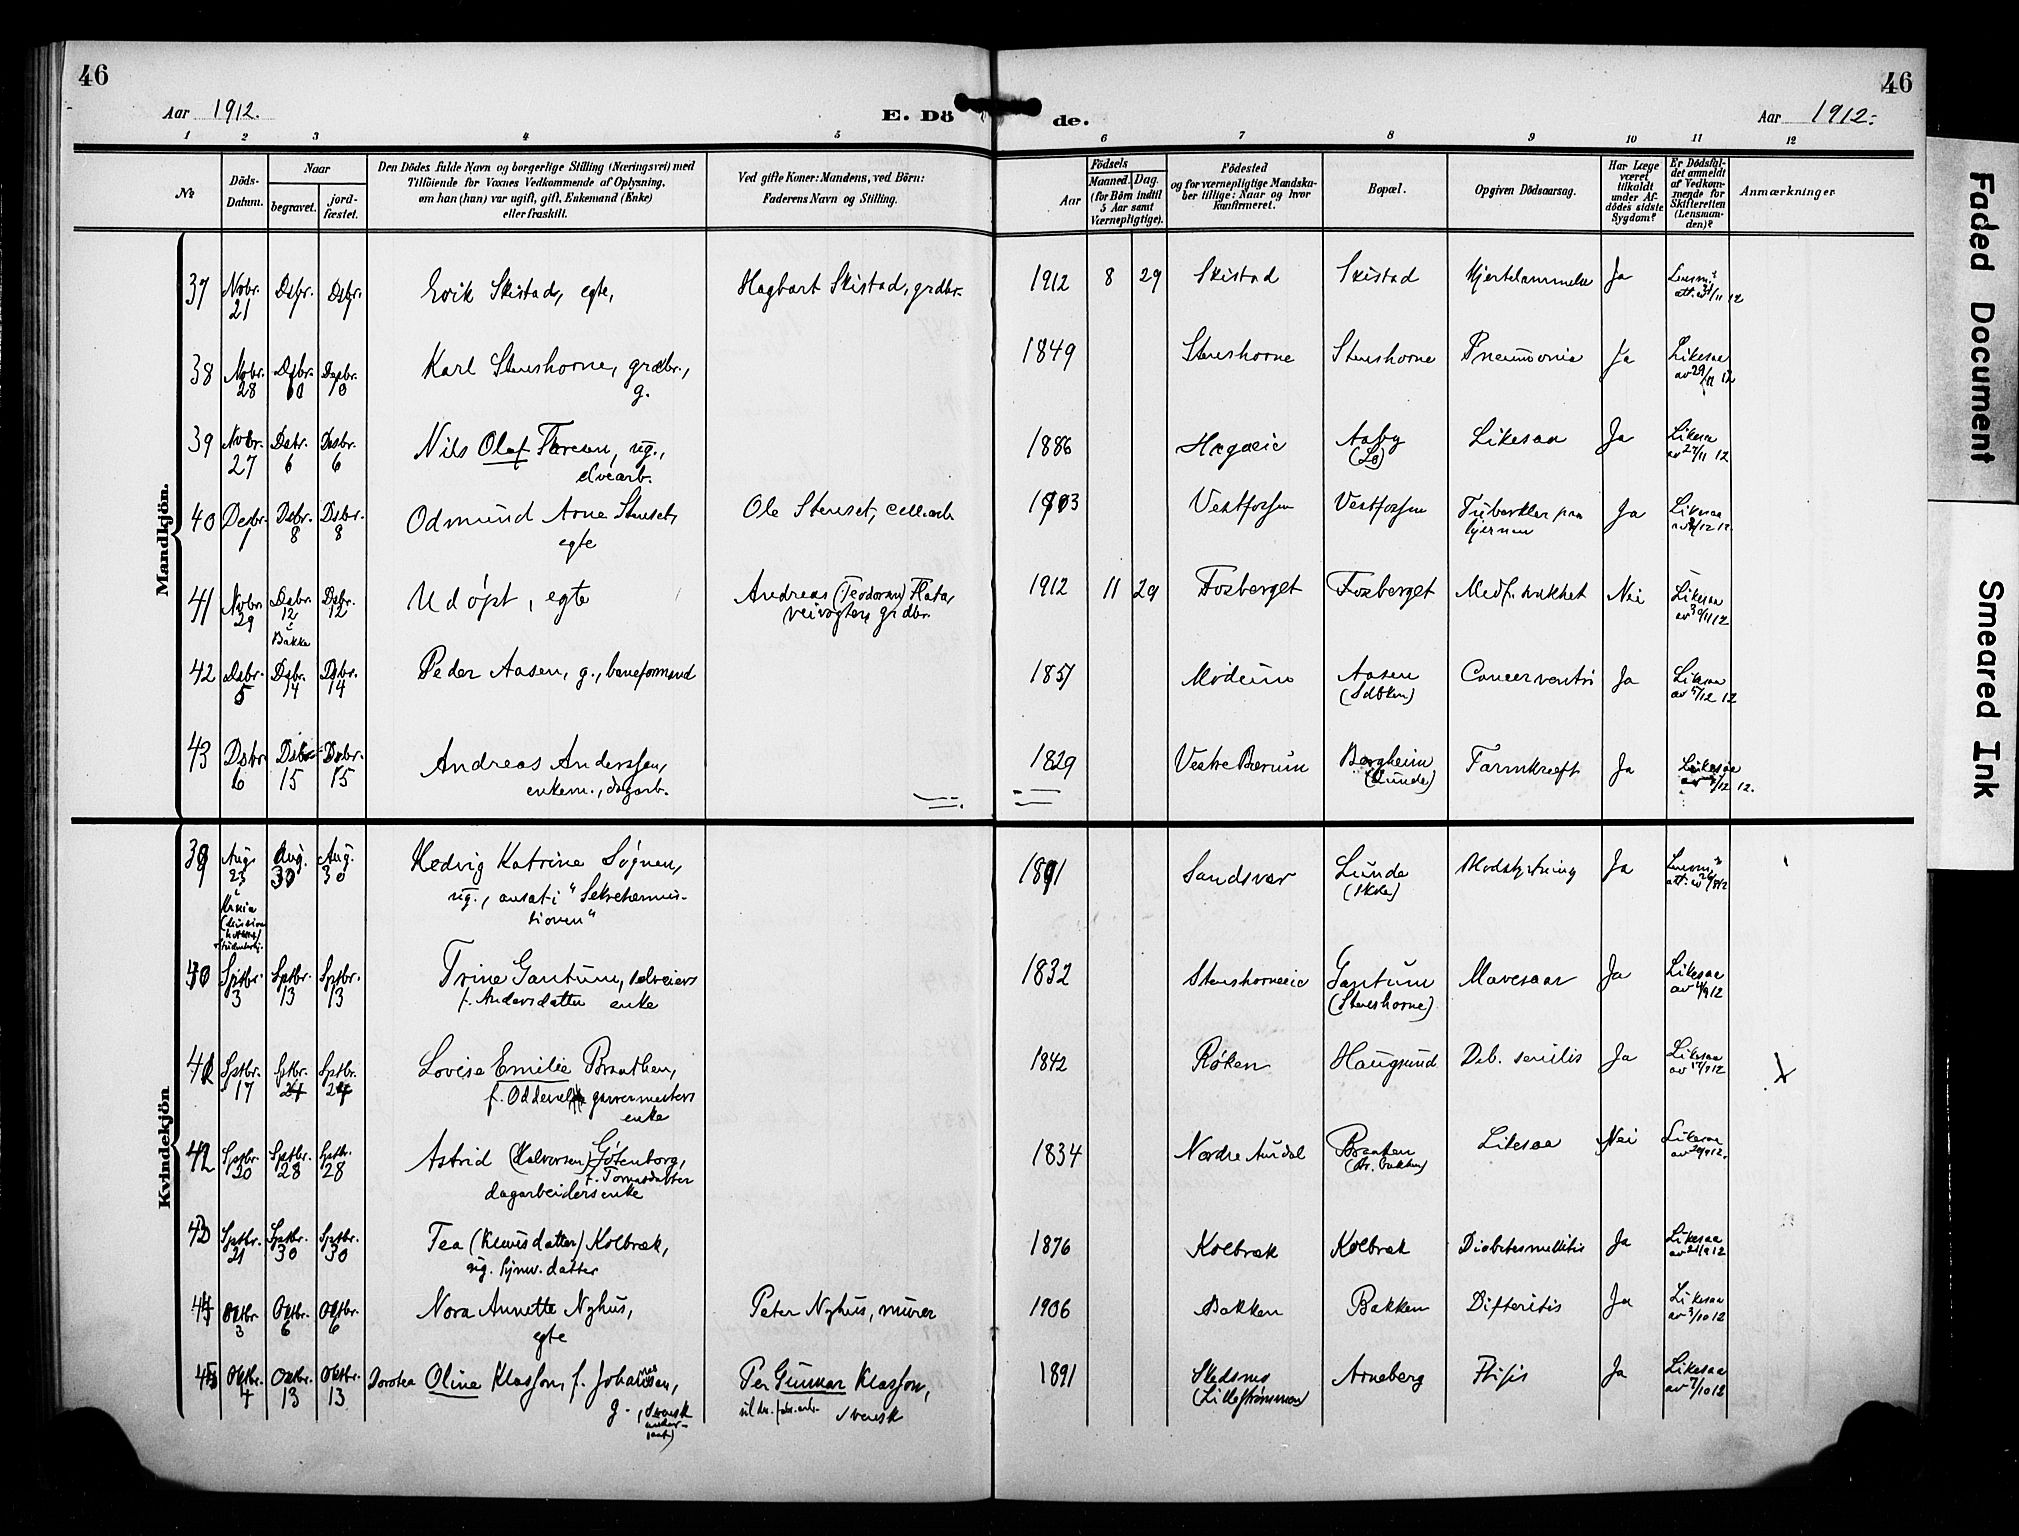 46
46
Aar 1912.
E. Dö
de.
Aar 1912.
1 2 3 4 5 6 7 8 9 10 11 12
No
Döds-
Datum.
Naar
begravet.
jord-
fæstet.
Den Dödes fulde Navn og borgerlige Stilling (Næringsvei) med
Tilföiende for Voxnes Vedkommende af Oplysning,
om han (hun) var ugift, gift, Enkemand (Enke)
eller fraskilt.
Ved gifte Koner: Mandens, ved Börn:
Faderens Navn og Stilling.
Födsels
Aar
Maaned.
Dag.
(for Börn indtil
5 Aar samt
Værnepligtige).
Födested
og for værnepligtige Mandska-
ber tillige: Naar og hvor
konfirmeret.
Bopæl.
Opgiven Dödsaarsag.
Har Læge
været
tilkaldt
under Af-
dödes sidste
Sygdom?
Er Dödsfal-
det anmeldt
af Vedkom-
mende for
Skifteretten
(Lensman-
den)?
Anmærkninger
Mandkjön.
37 Nvbr. 21 Dsbr. 1 Dsbr. 1 Erik Skistad, egte, Hagbart Skistad, grdbr. 1912 8 29 Skistad Skistad Ja
38 Nvbr. 28 10 10 Karl Stenshorne, grdbr., g. 1849 Stenshorne Stenshorne Pneumonia Ja Likesaa av 29/11 12
39 Nvbr. 27 Dsbr. 6 Dsbr. 6 Nils Olaf ug., 1886 Aasby Likesaa Ja Likesaa av 11 12
40 Dsbr. 1 Dsbr. 8 Dsbr. 8 Odmund Arne Stenset, egte Ole Stenset, cell.arb. 1903 Vestfossen Vestfossen Ja Likesaa 12 12.
41 Nvbr. 29 Dsbr. 12 Bakke Dsbr. 12 Udøpt, egte Andreas (Teodorsen) veivogter, grdbr. 1912 11 29 Fosberget Fosberget Medf. svakhet Nei Likesaa av 30/11 12
42 Dsbr. 5 Dsbr. 14 Dsbr. 14 Peder Aasen, g., baneformand 1851 Modum Aasen Cancer ventri Ja Likesaa av 5/12 12
43 Dsbr. 6 Dsbr. 15 Dsbr. 15 Andreas Anderssen, enkem., dagarb. 1829 Vestre Bærum Bergheim (Lunde) Tarmkræft Ja Likesaa 12 12.
Kvindekjön
39 Aug. 23 Aug. 30 Aug. 30 Hedvig Katrine Søgnen, ug., ansat i 1891 Sandsvær Lunde (skole) Blodstyrtning Ja
40 Sptbr. 3 Sptbr. 13 Sptbr. 13 Trine Gantum, selveiers enke f. Andersdatter 1832 Stenshorneeie Gantum (Stenshorne) Mavesaar Ja Likesaa av 4/9 12
41 Sptbr. 17 Sptbr. 24 Sptbr. 24 Lovise Emilie Braathen, garvermesters enke 1842 Røken Haugsund Deb. senilis Ja Likesaa av 17/9 12
42 Sptbr. 20 Sptbr. 28 Sptbr. 28 Astrid (Halvorsen) Gøtenborg, dagarbeiders enke 1834 Nordre Aurdal Braaten Likesaa Nei Likesaa av 9 12.
43 Sptbr. 21 Sptbr. 30 Sptbr. 30 Tea (Klausdatter) Kolbræk, ug. datter 1876 Kolbræk Kolbræk Diabetes mellitis Ja Likesaa av 21/9 12
44 Oktbr. 3 Oktbr. 6 Oktbr. 6 Nora Annette Nyhus, egte Peter Nyhus, murer 1906 Bakken Bakken Difteritis Ja Likesaa av 3/10 12
45 Oktbr. 4 Oktbr. 13 Oktbr. 13 Dorotea Oline Klasson, f. Johannessen, g., (svensk undersaat) Per Gunnar Klasson, svensk 1891 Skedsmo (Lillestrømmen) Arneberg Ftisis Ja Likesaa av 7/10 12
Faded Document
Smeared Ink